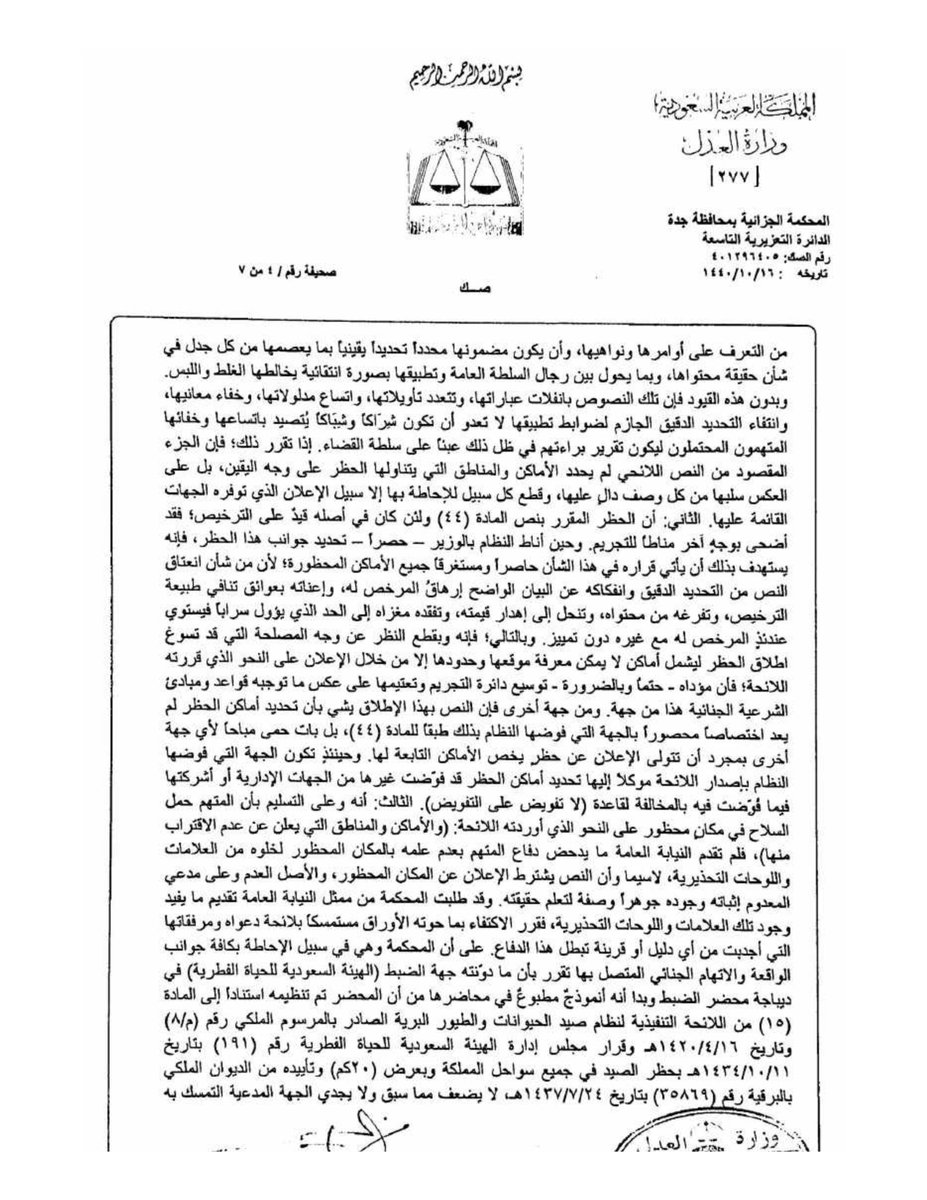 بسم الله الرحمن الرحيم
المملكة العربية السعودية
وزارة العدل
[٢٧٧]
المحكمة الجزائية بمحافظة جدة
الدائرة التعزيرية التاسعة
رقم الصك: ٤٠١٢٩٦٤٠٥
تاريخه : ١٤٤٠/١٠/١٦
صحيفة رقم / ٤ من ٧
صك
من التعرف على أوامرها ونواهيها، وأن يكون مضمونها محدداً تحديداً يقينياً بما يعصمها من كل جدل في
شأن حقيقة محتواها، وبما يحول بين رجال السلطة العامة وتطبيقها بصورة انتقائية يخالطها الغلط واللبس.
وبدون هذه القيود فإن تلك النصوص بانفلات عباراتها، وتتعدد تأويلاتها، واتساع مدلولاتها، وخفاء معانيها،
وانتفاء التحديد الدقيق الجازم لضوابط تطبيقها لا تعدو أن تكون شِرَاكاً وشِبَاكاً يُتصيد باتساعها وخفائها
المتهمون المحتملون ليكون تقرير براءتهم في ظل ذلك عبئاً على سلطة القضاء. إذا تقرر ذلك؛ فإن الجزء
المقصود من النص اللائحي لم يحدد الأماكن والمناطق التي يتناولها الحظر على وجه اليقين، بل على
العكس سلبها من كل وصف دالٍ عليها، وقطع كل سبيل للإحاطة بها إلا سبيل الإعلان الذي توفره الجهات
القائمة عليها. الثاني: أن الحظر المقرر بنص المادة (٤٤) ولئن كان في أصله قيدٌ على الترخيص؛ فقد
أضحى بوجهٍ آخر مناطاً للتجريم. وحين أناط النظام بالوزير – حصراً – تحديد جوانب هذا الحظر، فإنه
يستهدف بذلك أن يأتي قراره في هذا الشأن حاصراً ومستغرقاً جميع الأماكن المحظورة؛ لأن من شأن انعتاق
النص من التحديد الدقيق وانفكاكه عن البيان الواضح إرهاقُ المرخص له، وإعناته بعوائق تنافي طبيعة
الترخيص، وتفرغه من محتواه، وتنحل إلى إهدار قيمته، وتفقده مغزاه إلى الحد الذي يؤول سراباً فيستوي
عندئذٍ المرخص له مع غيره دون تمييز. وبالتالي؛ فإنه وبقطع النظر عن وجه المصلحة التي قد تسوغ
اطلاق الحظر ليشمل أماكن لا يمكن معرفة موقعها وحدودها إلا من خلال الإعلان على النحو الذي قررته
اللائحة؛ فأن مؤداه - حتماً وبالضرورة - توسيع دائرة التجريم وتعتيمها على عكس ما توجبه قواعد ومبادئ
الشرعية الجنائية هذا من جهة. ومن جهة أخرى فإن النص بهذا الإطلاق يشي بأن تحديد أماكن الحظر لم
يعد اختصاصاً محصوراً بالجهة التي فوضها النظام بذلك طبقاً للمادة (٤٤)، بل بات حمى مباحاً لأي جهة
أخرى بمجرد أن تتولى الإعلان عن حظرٍ يخص الأماكن التابعة لها. وحينئذٍ تكون الجهة التي فوضها
النظام بإصدار اللائحة موكلاً إليها تحديد أماكن الحظر قد فوّضت غيرها من الجهات الإدارية أو أشركتها
فيما فُوّضت فيه بالمخالفة لقاعدة (لا تفويض على التفويض). الثالث: أنه وعلى التسليم بأن المتهم حمل
السلاح في مكانٍ محظور على النحو الذي أوردته اللائحة: (والأماكن والمناطق التي يعلن عن عدم الاقتراب
منها)، فلم تقدم النيابة العامة ما يدحض دفاع المتهم بعدم علمه بالمكان المحظور لخلوه من العلامات
واللوحات التحذيرية، لاسيما وأن النص يشترط الإعلان عن المكان المحظور، والأصل العدم وعلى مدعي
المعدوم إثباته وجوده جوهراً وصفة لتعلم حقيقته. وقد طلبت المحكمة من ممثل النيابة العامة تقديم ما يفيد
وجود تلك العلامات واللوحات التحذيرية، فقرر الاكتفاء بما حوته الأوراق مستمسكاً بلائحة دعواه ومرفقاتها
التي أجدبت من أي دليل أو قرينة تبطل هذا الدفاع. على أن المحكمة وهي في سبيل الإحاطة بكافة جوانب
الواقعة والاتهام الجنائي المتصل بها تقرر بأن ما دوّنته جهة الضبط (الهيئة السعودية للحياة الفطرية) في
ديباجة محضر الضبط وبدا أنه أنموذجٌ مطبوعٌ في محاضرها من أن المحضر تم تنظيمه استناداً إلى المادة
(١٥) من اللائحة التنفيذية لنظام صيد الحيوانات والطيور البرية الصادر بالمرسوم الملكي رقم (م/٨)
وتاريخ ١٤٢٠/٤/١٦هـ وقرار مجلس إدارة الهيئة السعودية للحياة الفطرية رقم (١٩١) بتاريخ
١٤٣٤/١٠/١١هـ بحظر الصيد في جميع سواحل المملكة وبعرض (٢٠كم) وتأييده من الديوان الملكي
بالبرقية رقم (٣٥٨٦٩) بتاريخ ١٤٣٧/٧/٢٤هـ، لا يضعف مما سبق ولا يجدي الجهة المدعية التمسك به
وزارة العدل